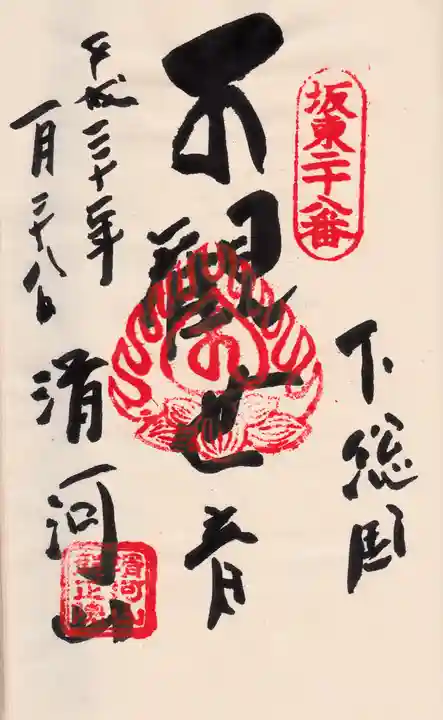 坂東二十八番
下総国
観世音
滑河山
平成三十一年
一月二十八日
滑河山
龍正院